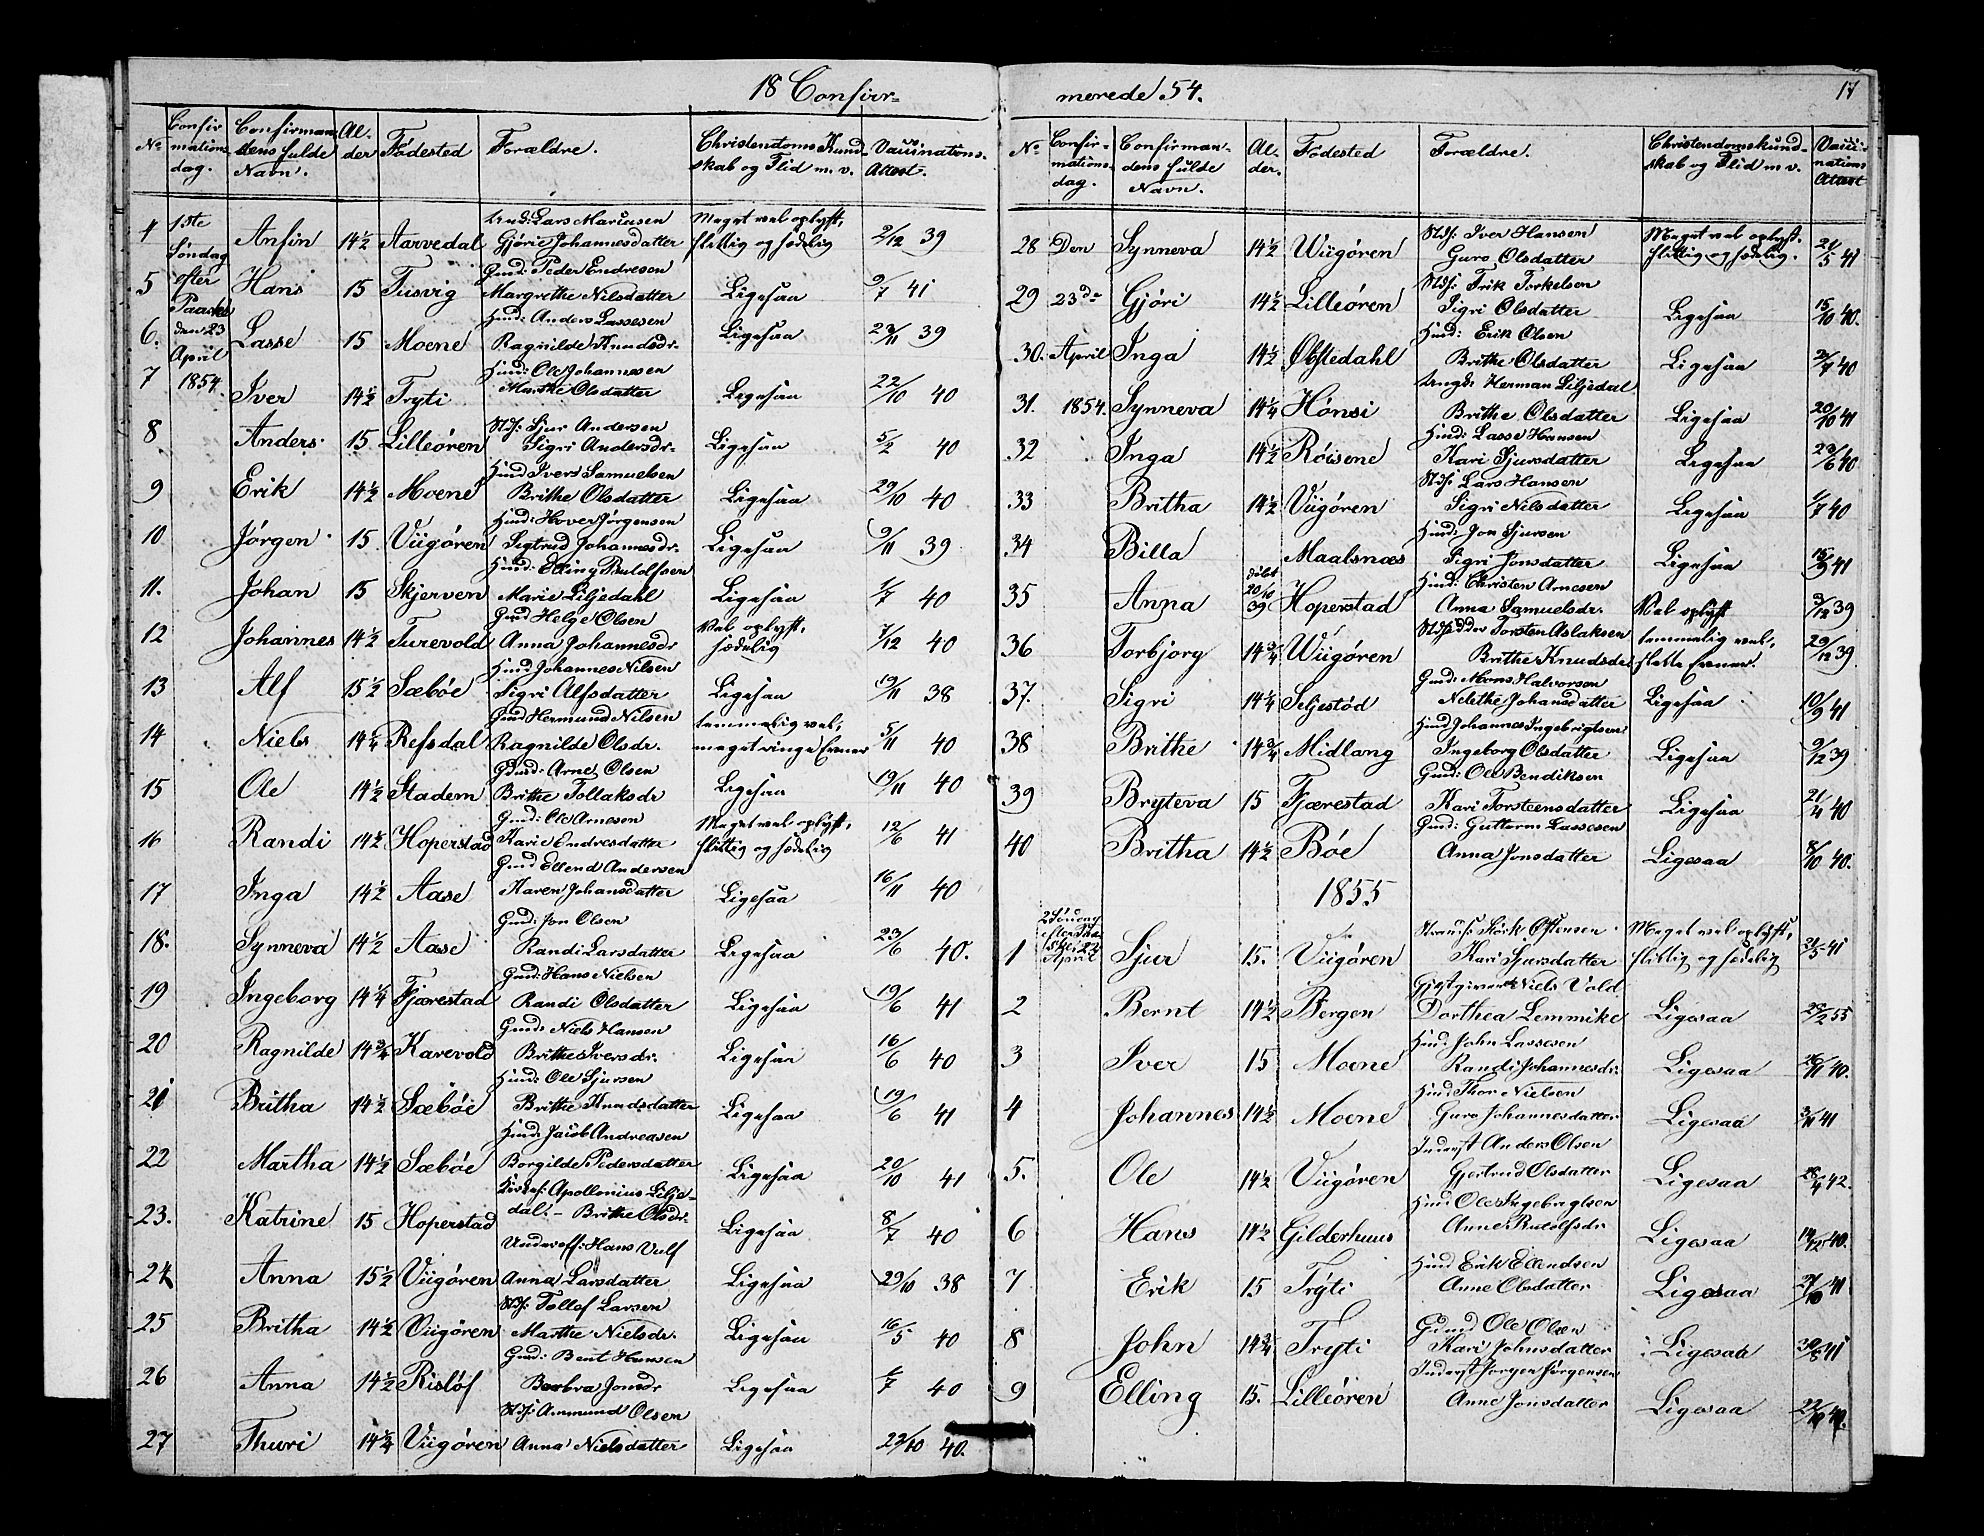 18 Confirr=
No Confirmations dag. Confirmandens fulde Navn. Alder Födested Forældre. Christendoms Kundskab og Flid m. v. Vaccinations-Attest.
4 1ste Söndag Anfin 14½ Aarvedal Lars Mariusen
Gjörie Johannesdatter Meget vel oplyst, flittig og sædelig 2/12 39
5 efter Paaske Hans 15 Tusvig Gmd: Peder Endresen
Margrethe Nilsdatter Ligesaa 9/7 41
6. den 23 April Lasse 15 Moene Hmd: Anders Lassesen
Ragnilde Knudsdr. Ligesaa 23/11 39
7 1854. Iver 14½ Tryti Hmd: Ole Johannesen
Marthe Olsdatter Ligesaa 22/10 40
8 Anders 15 Lilleören Sjur Andersen
Sigri Andersdr. Ligesaa 5/2 40
9 Erik 14½ Moene Hmd Iver Samuelsen
Brithe Olsdatter Ligesaa 29/10 40
10 Jörgen 15 Viigören Hmd: Hover Jörgensen
Sigtrud Johannesdr. Ligesaa 9/11 39
11. Johan 15 Skjerven Hmd: Elling Rudolfsen
Marie Liljedahl Ligesaa 1/7 40
12 Johannes 14½ Turevold Gmd Helge Olsen
Anna Johannesdr Vel oplyst, sædelig 7/12 40
13 Alf 15½ Sæböe Hmd Johannes Nilsen
Sigri Alfsdatter Ligesaa 19/11 38
14 Niels 14¼ Refsdal Gmd Hermund Nilsen
Ragnilde Olsdr. temmelig vel, meget ringe Evner 5/11 40
15 Ole 14½ Stadem Gmd: Arne Olsen
Brithe Tollaksdr Ligesaa 19/11 40
16 Randi 14½ Hoperstad Gmd: Ole Arnesen
Karie Endresdatter Meget vel oplyst, flittig og sædelig 12/6 41
17 Inga 14½ Aase Gmd Ellend Andersen
Karen Johansdatter Ligesaa 16/11 40
18. Synneva 14½ Aase Gmd: Jon Olsen
Randi Larsdatter Ligesaa 23/6 40.
19 Ingeborg 14¼ Fjærestad Gmd: Hans Nielsen
Randi Olsdatter Ligesaa 19/6 41
20 Ragnilde 14¾ Karevold Gmd: Niels Hansen
Brithe Iversdr. Ligesaa 16/6 40
21 Britha 14½ Sæböe Hmd: Ole Sjursen
Brithe Knudsdatter Ligesaa 19/6 41
22 Martha 14½ Sæböe Hmd: Jacob Andreasen
Borgilde Pedersdatter Ligesaa 20/10 41
23. Katrine 15 Hoperstad Apollonius Liljedal. - Brithe Olsdr. Ligesaa 8/7 40
24 Anna 15½ Viigören Underoff: Hans Vulf
Anna Larsdatter Ligesaa 29/10 38
25 Britha 14½ Viigören Tollef Larsen
Marthe Nielsdr. Ligesaa 16/5 40
26 Anna 14½ Rislöf Gmd: Bent Hansen
Barbra Jonsdr Ligesaa 6/7 40
27 Thuri 14¼ Viigören Anmund Olsen
Anna Nielsdatter Ligesaa 23/10 40.
merede 54. 17
No Confirmations dag. Confirmandens fulde Navn. Alder. Födested Forældre. Christendomskundskab og Flid m v. Vaccinations Attest
28 Den Synneva 14½ Wiigören Iver Hansen
Guro Olsdatter Meget vel oplyst. flittig og sædelig. 21/5 41
29 23de Gjöri 14½ Lilleören Erik Torkelsen
Sigri Olsdatter Ligesaa 15/10 40.
30. April Inga 14½ Öfstedahl Hmd: Erik Olsen
Brithe Olsdatter Ligesaa 2/7 40
31. 1854. Synneva 14¼ Hönsi Herman Liljedal
Brithe Olsdatter Ligesaa 20/10 41
32 Inga 14½ Röisene Hmd: Lasse Hansen
Kari Sjursdatter Ligesaa 23/6 40
33 Britha 14½ Viigören Lars Hansen
Sigri Nilsdatter Ligesaa 1/7 40
34 Billa Maalsnæs Hmd: Jon Sjursen
Sigri Jonsdatter Ligesaa 15/9 41
35 Anna döbt 20/10 39 Hoperstad Hmd: Christen Arnesen
Anna Samuelsdr. Vel oplyst 3/12 39
36 Torbjorg 14¾ Wiigören Torsten Aslaksen
Brithe Knudsdr temmelig vel, slette Evner. 29/12 39
37. Sigri 14¼ Seljestöd Gmd: Mons Halvorsen
Johansdatter Ligesaa 10/9 41
38 Brithe 14¾ Midlang Hmd Johannes Ingebrigtsen
Ingeborg Olsdatter Ligesaa 9/12 39
39 Bryteva 15 Fjærestad Gmd: Ole Bendiksen
Kari Torsteensdatter Ligesaa 21/4 40
40 Britha 14½ Böe Gmd: Guttorm Lassesen
Anna Jonsdatter Ligesaa 8/10 40.
1855
1 2 Söndag efter Paaske 22 April Sjur 15. Viigören Störk Östensen
Kari Sjursdatter Meget vel oplyst, flittig og sædelig 21/5 41
2 Bernt 14½ Bergen Gjestgiver Niels Vold
Dorthea Lemmike Ligesaa 25/2 55
3 Iver 15 Moene Hmd John Lassesen
Randi Johannesdr. Ligesaa 26/11 40.
4 Johannes 14½ Moene Hmd Thor Nielsen
Guro Johannesdatter Ligesaa 3/11 41
5. Ole 14½ Viigören Inderst Anders Olsen
Gjertrud Olsdatter Ligesaa 28/4 42.
6 Hans 14½ Gilderhuus Hmd Ole Ingebrigtsen
Anne Rudolfsdr Ligesaa 14/12 40.
7 Erik 15 Tryti Hmd Erik Ellendsen
Anne Olsdatter Ligesaa 27/10 41
8 John 14¾ Tryti Gdmd Ole Olsen
Kari Johnsdatter Ligesaa 30/8 41
9 Elling 15. Lilleören Inderst Jörgen Jörgensen
Anne Jonsdatter Ligesaa 22/10 40.